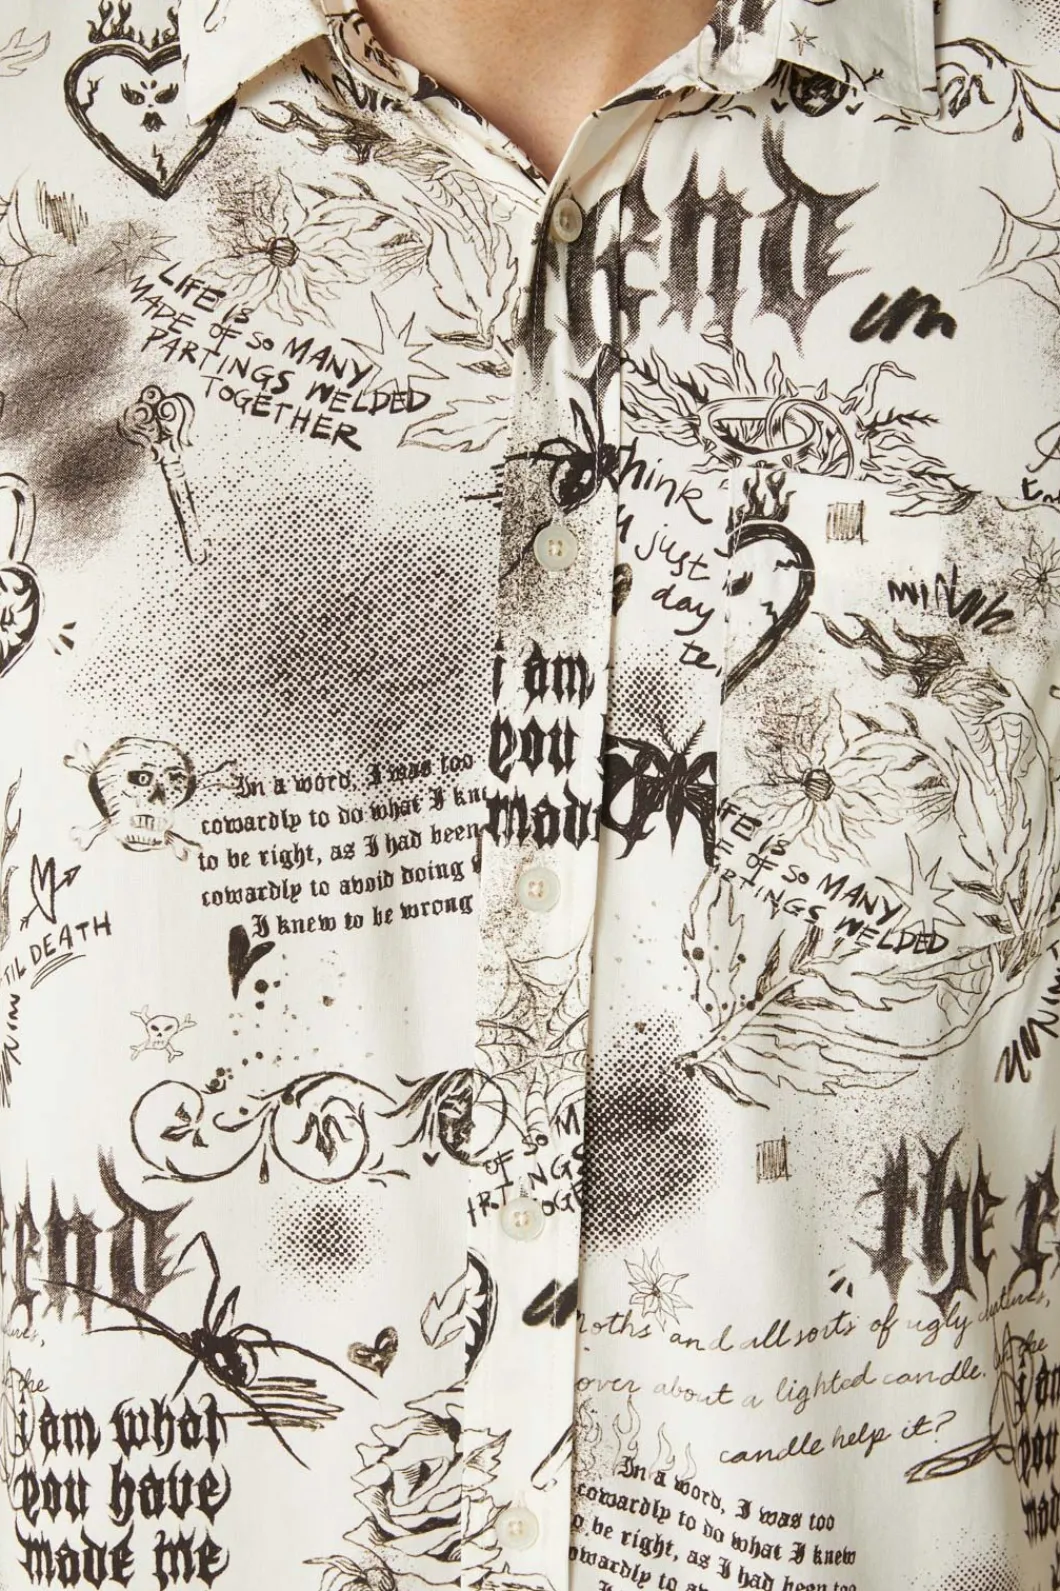 end
LIFE IS
MADE OF SO MANY
PARTINGS WELDED
TOGETHER
think
just
day
i am
you
made
In a word, I was too
cowardly to do what I kn
to be right, as I had been
cowardly to avoid doing
I knew to be wrong
FE IS
E OF SO MANY
RTINGS WELDED
'TIL DEATH
OF SO M
RTINGS
OGE
end
the e
moths and all sorts of ugly creatures,
over about a lighted candle.
the
candle help it?
i am what
you have
made me
i am
you
mad
In a word, I was too
cowardly to do what I knew
o be right, as I had been too
owardly to av